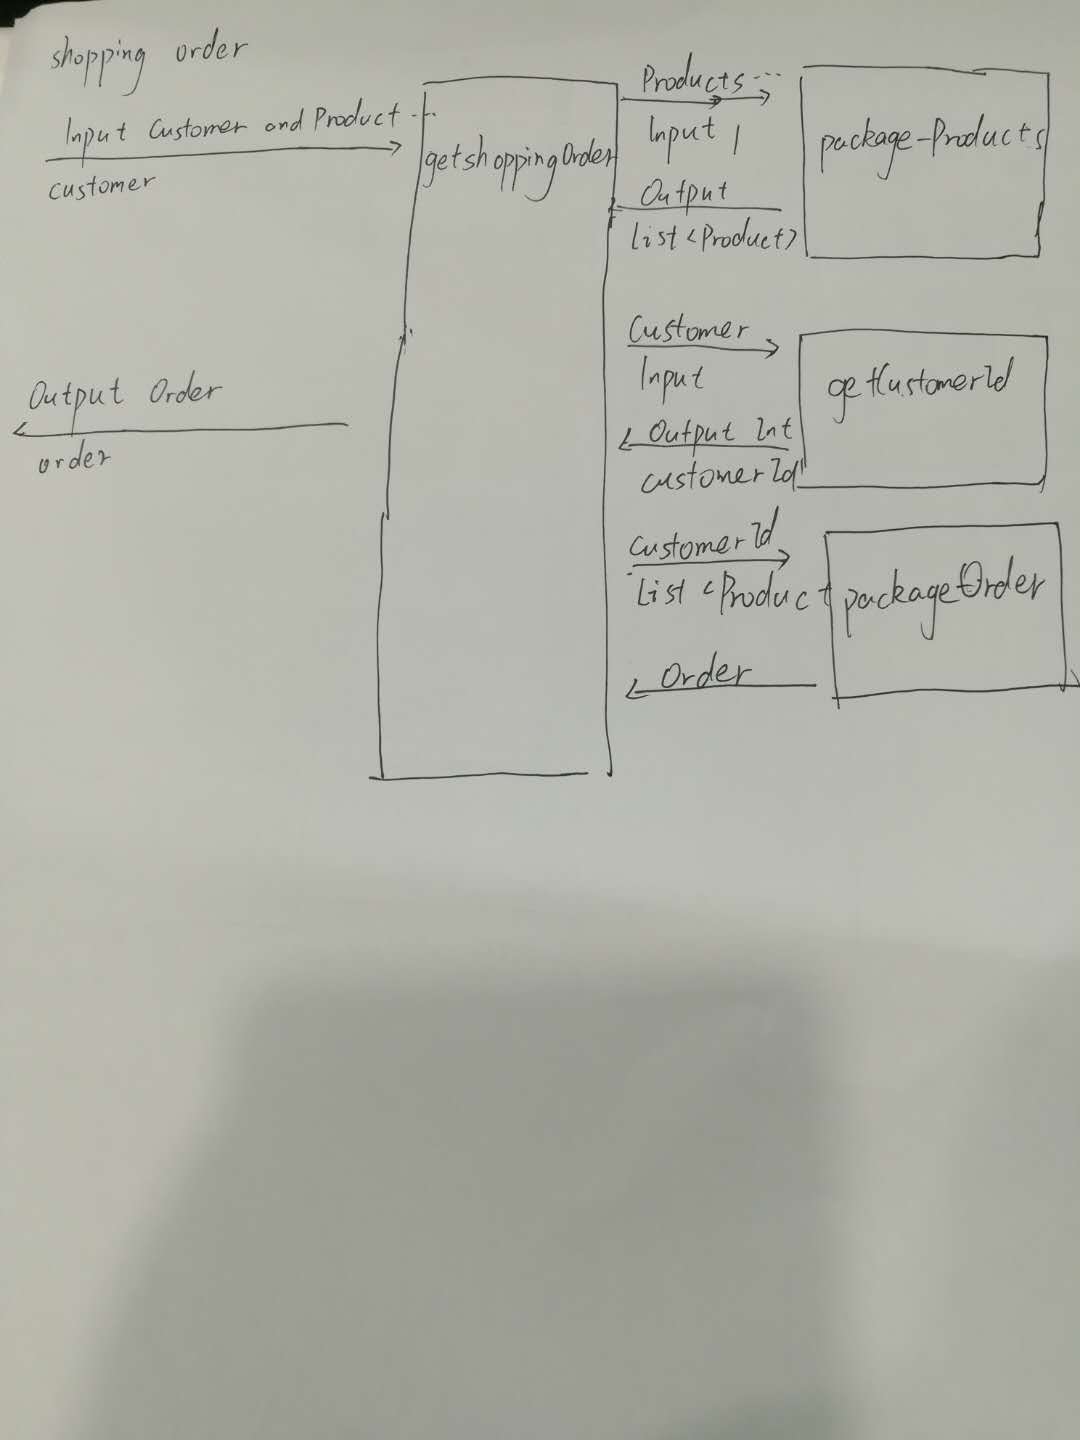 shopping order
Input Customer and Product ...
customer
getshoppingOrder
Products ...
Input
Output
List <Product>
package-Products
Customer
Input
Output Int
customerId
getCustomerId
Output Order
order
customerId
List <Product
Order
packageOrder